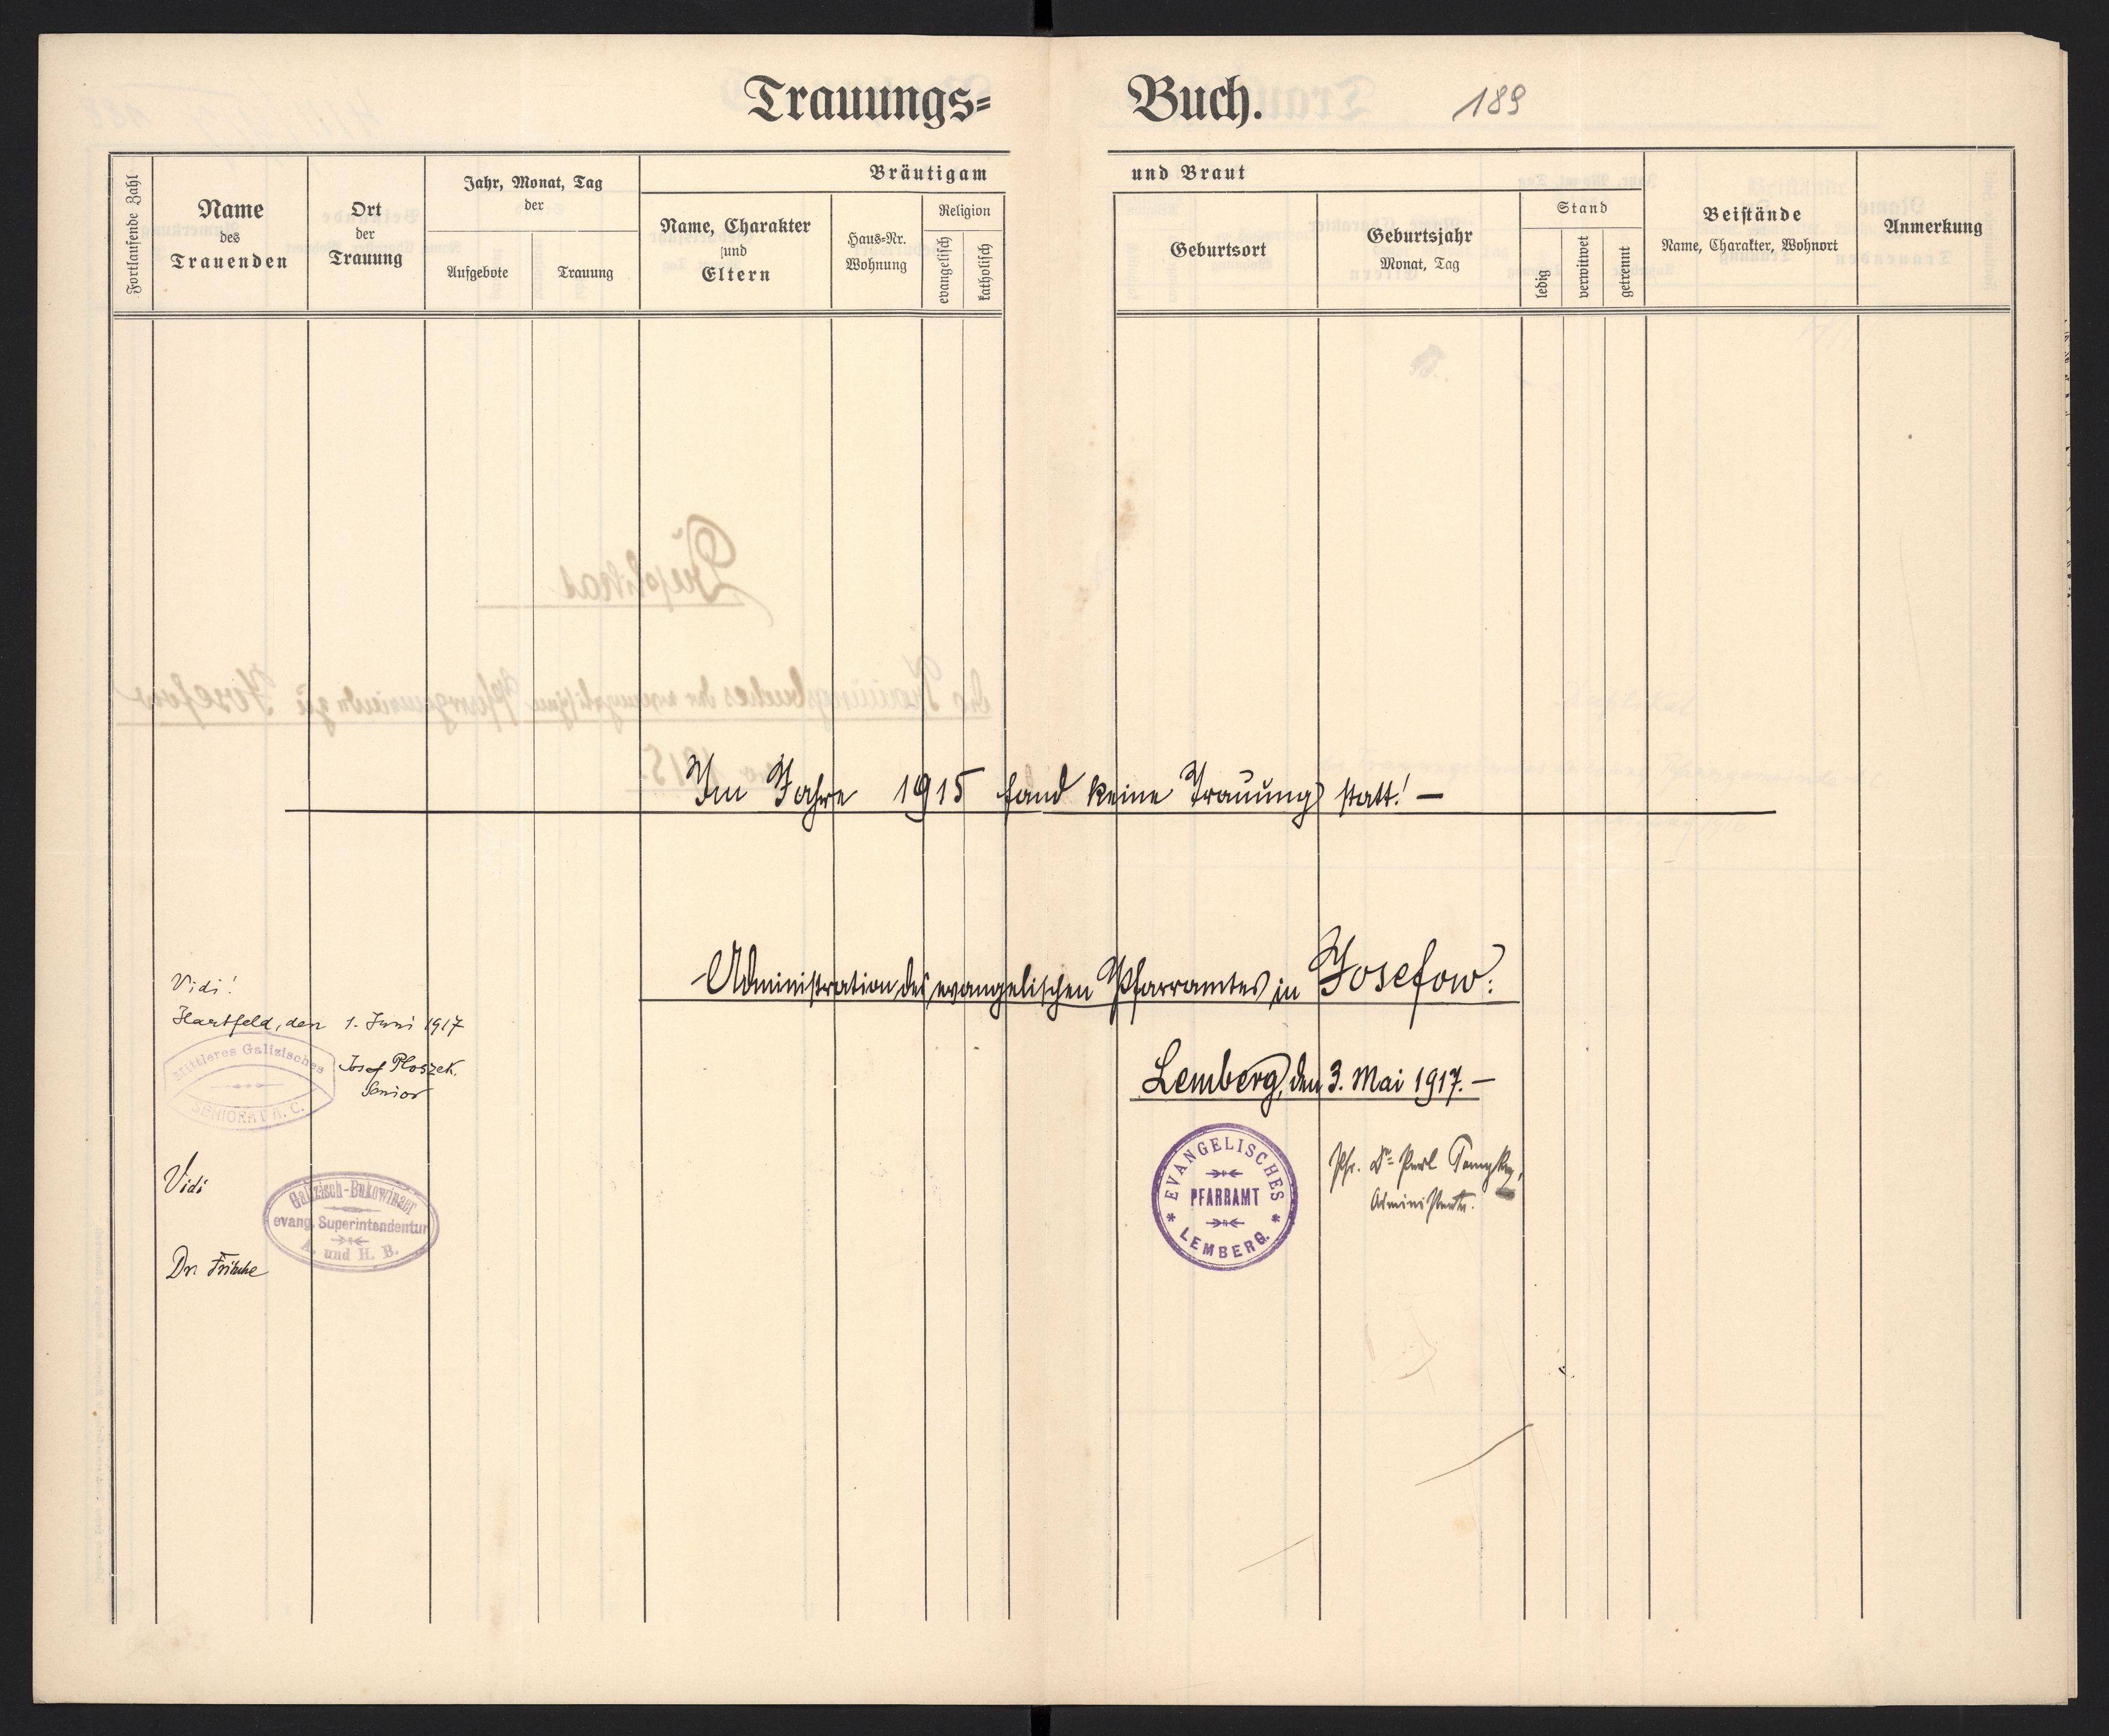 Trauungs= Buch. 189
Fortlaufende Zahl
Name
des
Trauenden
Ort
der
Trauung
Jahr, Monat, Tag
der
Aufgebote
Trauung
Bräutigam und Braut
Name, Charakter
und
Eltern
Haus=Nr.
Wohnung
Religion
evangelisch
katholisch
Geburtsort
Geburtsjahr
Monat, Tag
Stand
ledig
verwitwet
getrennt
Beistände
Name, Charakter, Wohnort
Anmerkung
Im Jahre 1915 fand keine Trauung statt! —
Administration des evangelischen Pfarramtes in Josefow.
Lemberg, den 3. Mai 1917. —
EVANGELISCHES
PFARRAMT
LEMBERG.
Pfr. Dr.
Administrator.
Vidi!
Hartfeld, den 1. Juni 1917
Mittleres Galizisches
SENIORAT A. C.
Josef Ploszek.
Senior
Vidi
Galizisch-Bukowinaer
evang. Superintendentur
A. und H. B.
Dr. Fritsche